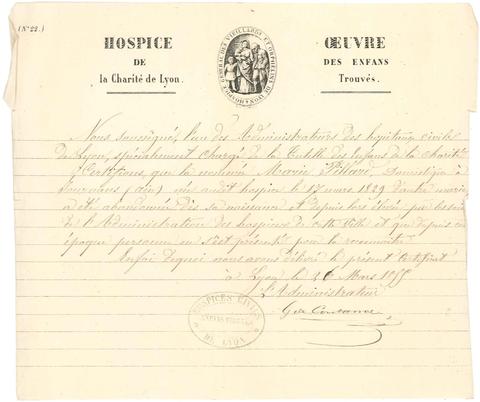 (N° 22.)
HOSPICE
DE
la Charité de Lyon.
HOSPICE GÉNÉRAL DES VIEILLARDS ET ORPHELINS DE LYON
ŒUVRE
DES ENFANS
Trouvés.
Nous soussigné, l'un des Administrateurs des hôpitaux civils
de Lyon, spécialement chargé de la tutelle des Enfans de la charité
Certifions que la nommée Marie, Domestique à
(ain) née audit hospice le 17 mars 1829
a été abandonnée dès sa naissance et depuis lors élevée par les soins
de l'Administration des hospices de cette Ville et que depuis son
époque personne ne s'est présenté pour la reconnaître.
Enfoi dequoi nous avons délivré le présent Certificat
à Lyon le 26 Mars
l'Administrateur
HOSPICES CIVILS
DE LYON